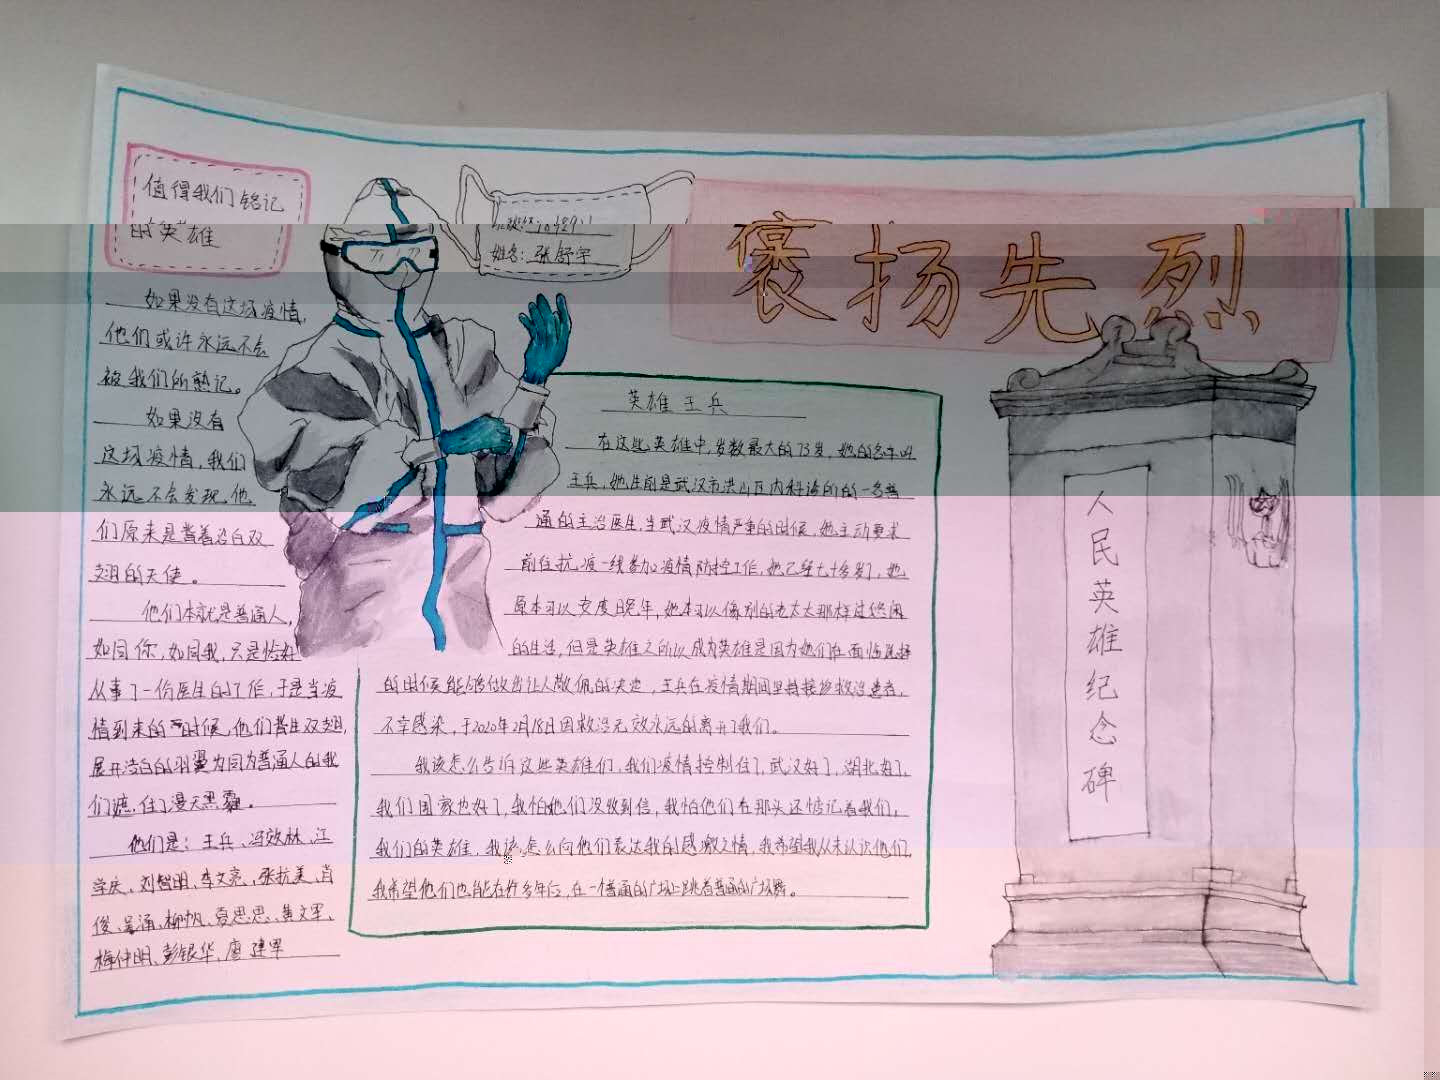 值得我们铭记
的英雄
姓名:张舒宇
褒扬先烈
如果没有这场疫情,
他们或许永远不会
被我们所熟记。
如果没有
这场疫情,我们
永远不会发现,他
们原来是背着洁白双
翅的天使。
他们本就是普通人,
如同你,如同我,只是恰好
从事了一份医生的工作,于是当疫
情到来的时候,他们背生双翅,
展开洁白的羽翼为同为普通人的我
们遮住了漫天黑霾。
他们是:王兵、冯效林、江
学庆、刘智明、李文亮、张抗美、肖
俊、吴涌、柳帆、夏思思、黄文军、
梅仲明、彭银华、廖建军
英雄王兵
在这些英雄中,岁数最大的73岁,她的名字叫
王兵,她生前是武汉市洪山区内科诊所的一名普
通的主治医生,当武汉疫情严重的时候,她主动要求
前往抗疫一线参加疫情防控工作,她已经七十多岁了,她
原本可以安度晚年,她本可以像别的老太太那样过悠闲
的生活,但是英雄之所以成为英雄是因为她们在面临选择
的时候能够做出让人敬佩的决定,王兵在疫情期间坚持接诊救治患者,
不幸感染,于2020年2月18日因救治无效永远的离开了我们。
我该怎么告诉这些英雄们,我们疫情控制住了,武汉好了,湖北好了,
我们国家也好了,我怕她们没收到信,我怕他们在那头还惦记着我们,
我们的英雄,我该怎么向他们表达我的感激之情,我希望我从未认识他们,
我希望他们也能在许多年后,在一个普通的广场上跳着普通的广场舞。
人民英雄纪念碑